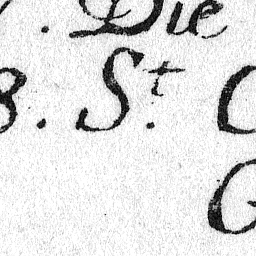 . Die
8. St.